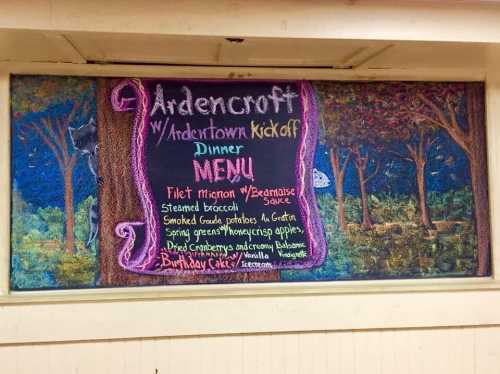 Ardencroft
w/Ardentown Kickoff
Dinner
MENU
Filet mignon w/Bearnaise
Sauce
Steamed broccoli
Smoked Gouda potatoes Au Gratin
Spring greens w/honeycrisp apples,
Dried Cranberrys and creamy Balsamic
Vinaigrette
Birthday Cake w/Vanilla
Icecream